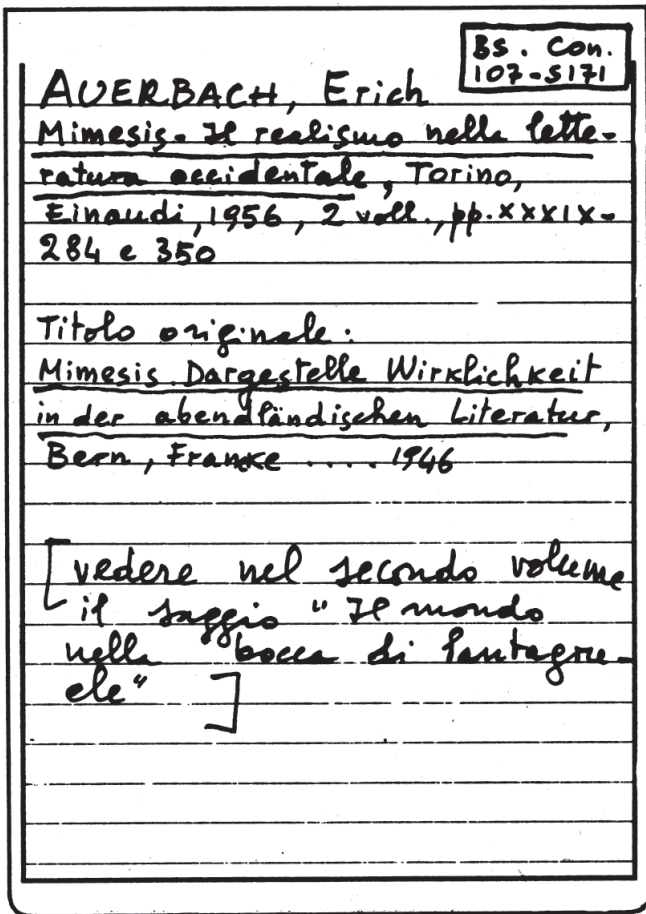 BS. Con.
107-5171
AUERBACH, Erich
Mimesis - Il realismo nella lette-
ratura occidentale, Torino,
Einaudi, 1956, 2 voll., pp. XXXIX-
284 e 350
Titolo originale:
Mimesis. Dargestelle Wirklichkeit
in der abendländischen Literatur,
Bern, Franke .... 1946
[vedere nel secondo volume
il saggio "Il mondo
nella bocca di Pantagru-
ele"]